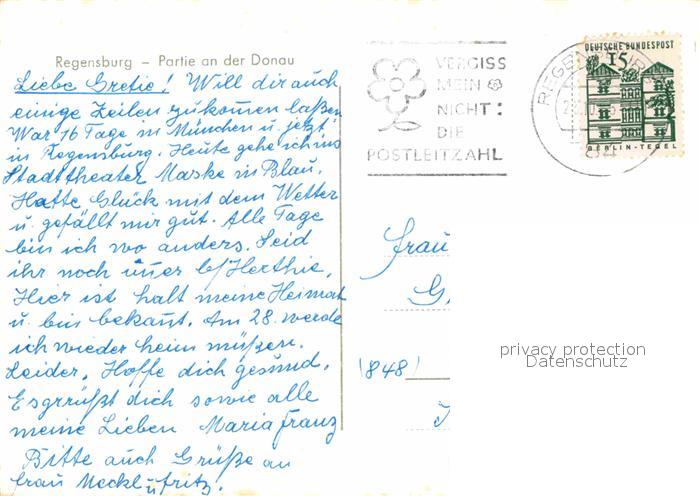 Regensburg – Partie an der Donau
Liebe Gretie! Will dir auch
einige Zeilen zukomen laßen
War 16 Tage in München u. jetzt
in Regensburg. Heute gehe ich ins
Stadttheater Maske in Blau.
Hatte Glück mit dem Wetter
u. gefällt mir gut. Alle Tage
bin ich wo anders. Seid
ihr noch
Hier ist halt meine Heimat
u. bin bekant. Am 28. werde
ich wieder heim müßen.
Leider. Hoffe dich gesund.
Esgrrüßt dich sowie alle
meine Lieben Maria Franz
Bitte auch Grüße an
Frau Neckl u Fritz.
VERGISS
MEIN
NICHT:
DIE
POSTLEITZAHL
REGENSBURG
84
DEUTSCHE BUNDESPOST
15
BERLIN-TEGEL
Frau
G.
(848)
privacy protection
Datenschutz